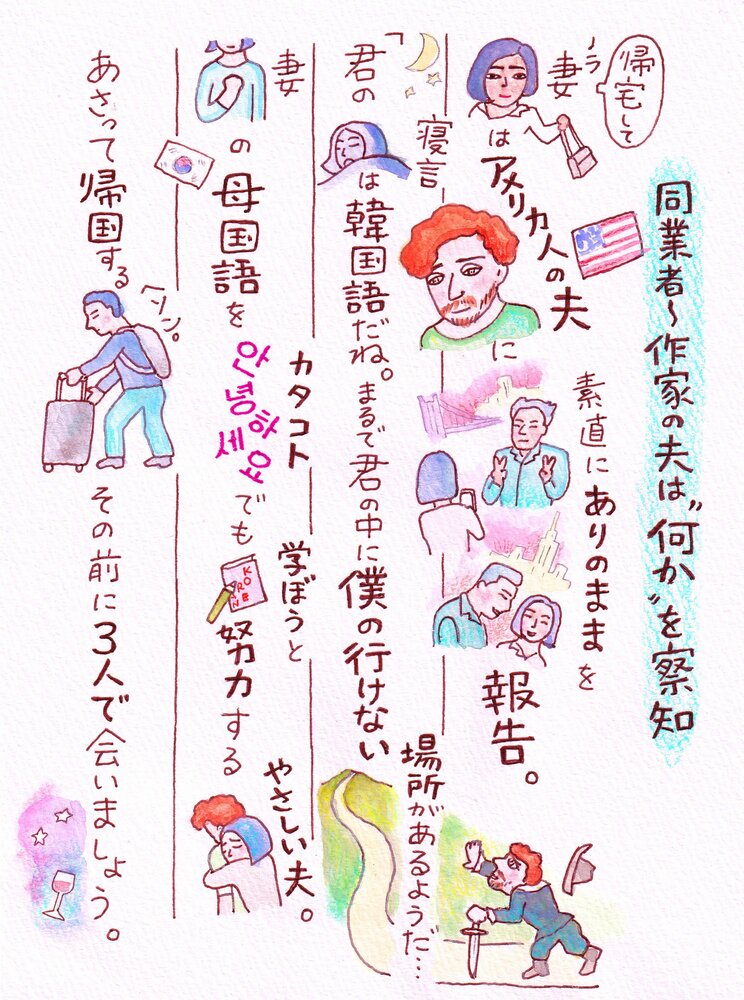 同業者〜作家の夫は“何か”を察知
帰宅して
ノラ
妻はアメリカ人の夫に
素直にありのままを
報告。
「君の寝言は韓国語だね。まるで君の中に僕の行けない
場所があるようだ…
妻の母国語を
カタコト
안녕하세요
でも
学ぼうと
KOREAN
努力する
やさしい夫。
あさって帰国する
ヘソン。
その前に3人で会いましょう。